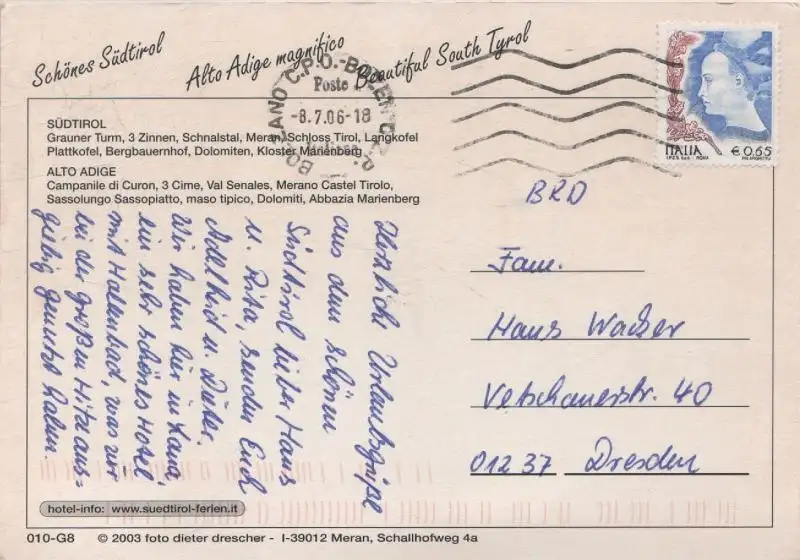 Schönes Südtirol
Alto Adige magnifico
Beautiful South Tyrol
SÜDTIROL
Grauner Turm, 3 Zinnen, Schnalstal, Meran Schloss Tirol, Langkofel
Plattkofel, Bergbauernhof, Dolomiten, Kloster Marienberg
ALTO ADIGE
Campanile di Curon, 3 Cime, Val Senales, Merano Castel Tirolo,
Sassolungo Sassopiatto, maso tipico, Dolomiti, Abbazia Marienberg
BOLZANO C.P.O.-BOZEN
Poste
-8.7.06-18
ITALIA €0,65
I.P.Z.S. S.p.A. - ROMA
Herzliche Urlaubsgrüße
aus dem schönen
Südtirol lieber Hans
u. Rita, senden Euch
Adelheid u. Dieter.
Wir haben hier in
ein sehr schönes Hotel
mit Hallenbad, was wir
bei der großen Hitze aus-
giebig genutzt haben.
BRD
Fam.
Hans Wacker
Vetschauerstr. 40
01237 Dresden
hotel-info: www.suedtirol-ferien.it
010-G8 © 2003 foto dieter drescher - I-39012 Meran, Schallhofweg 4a